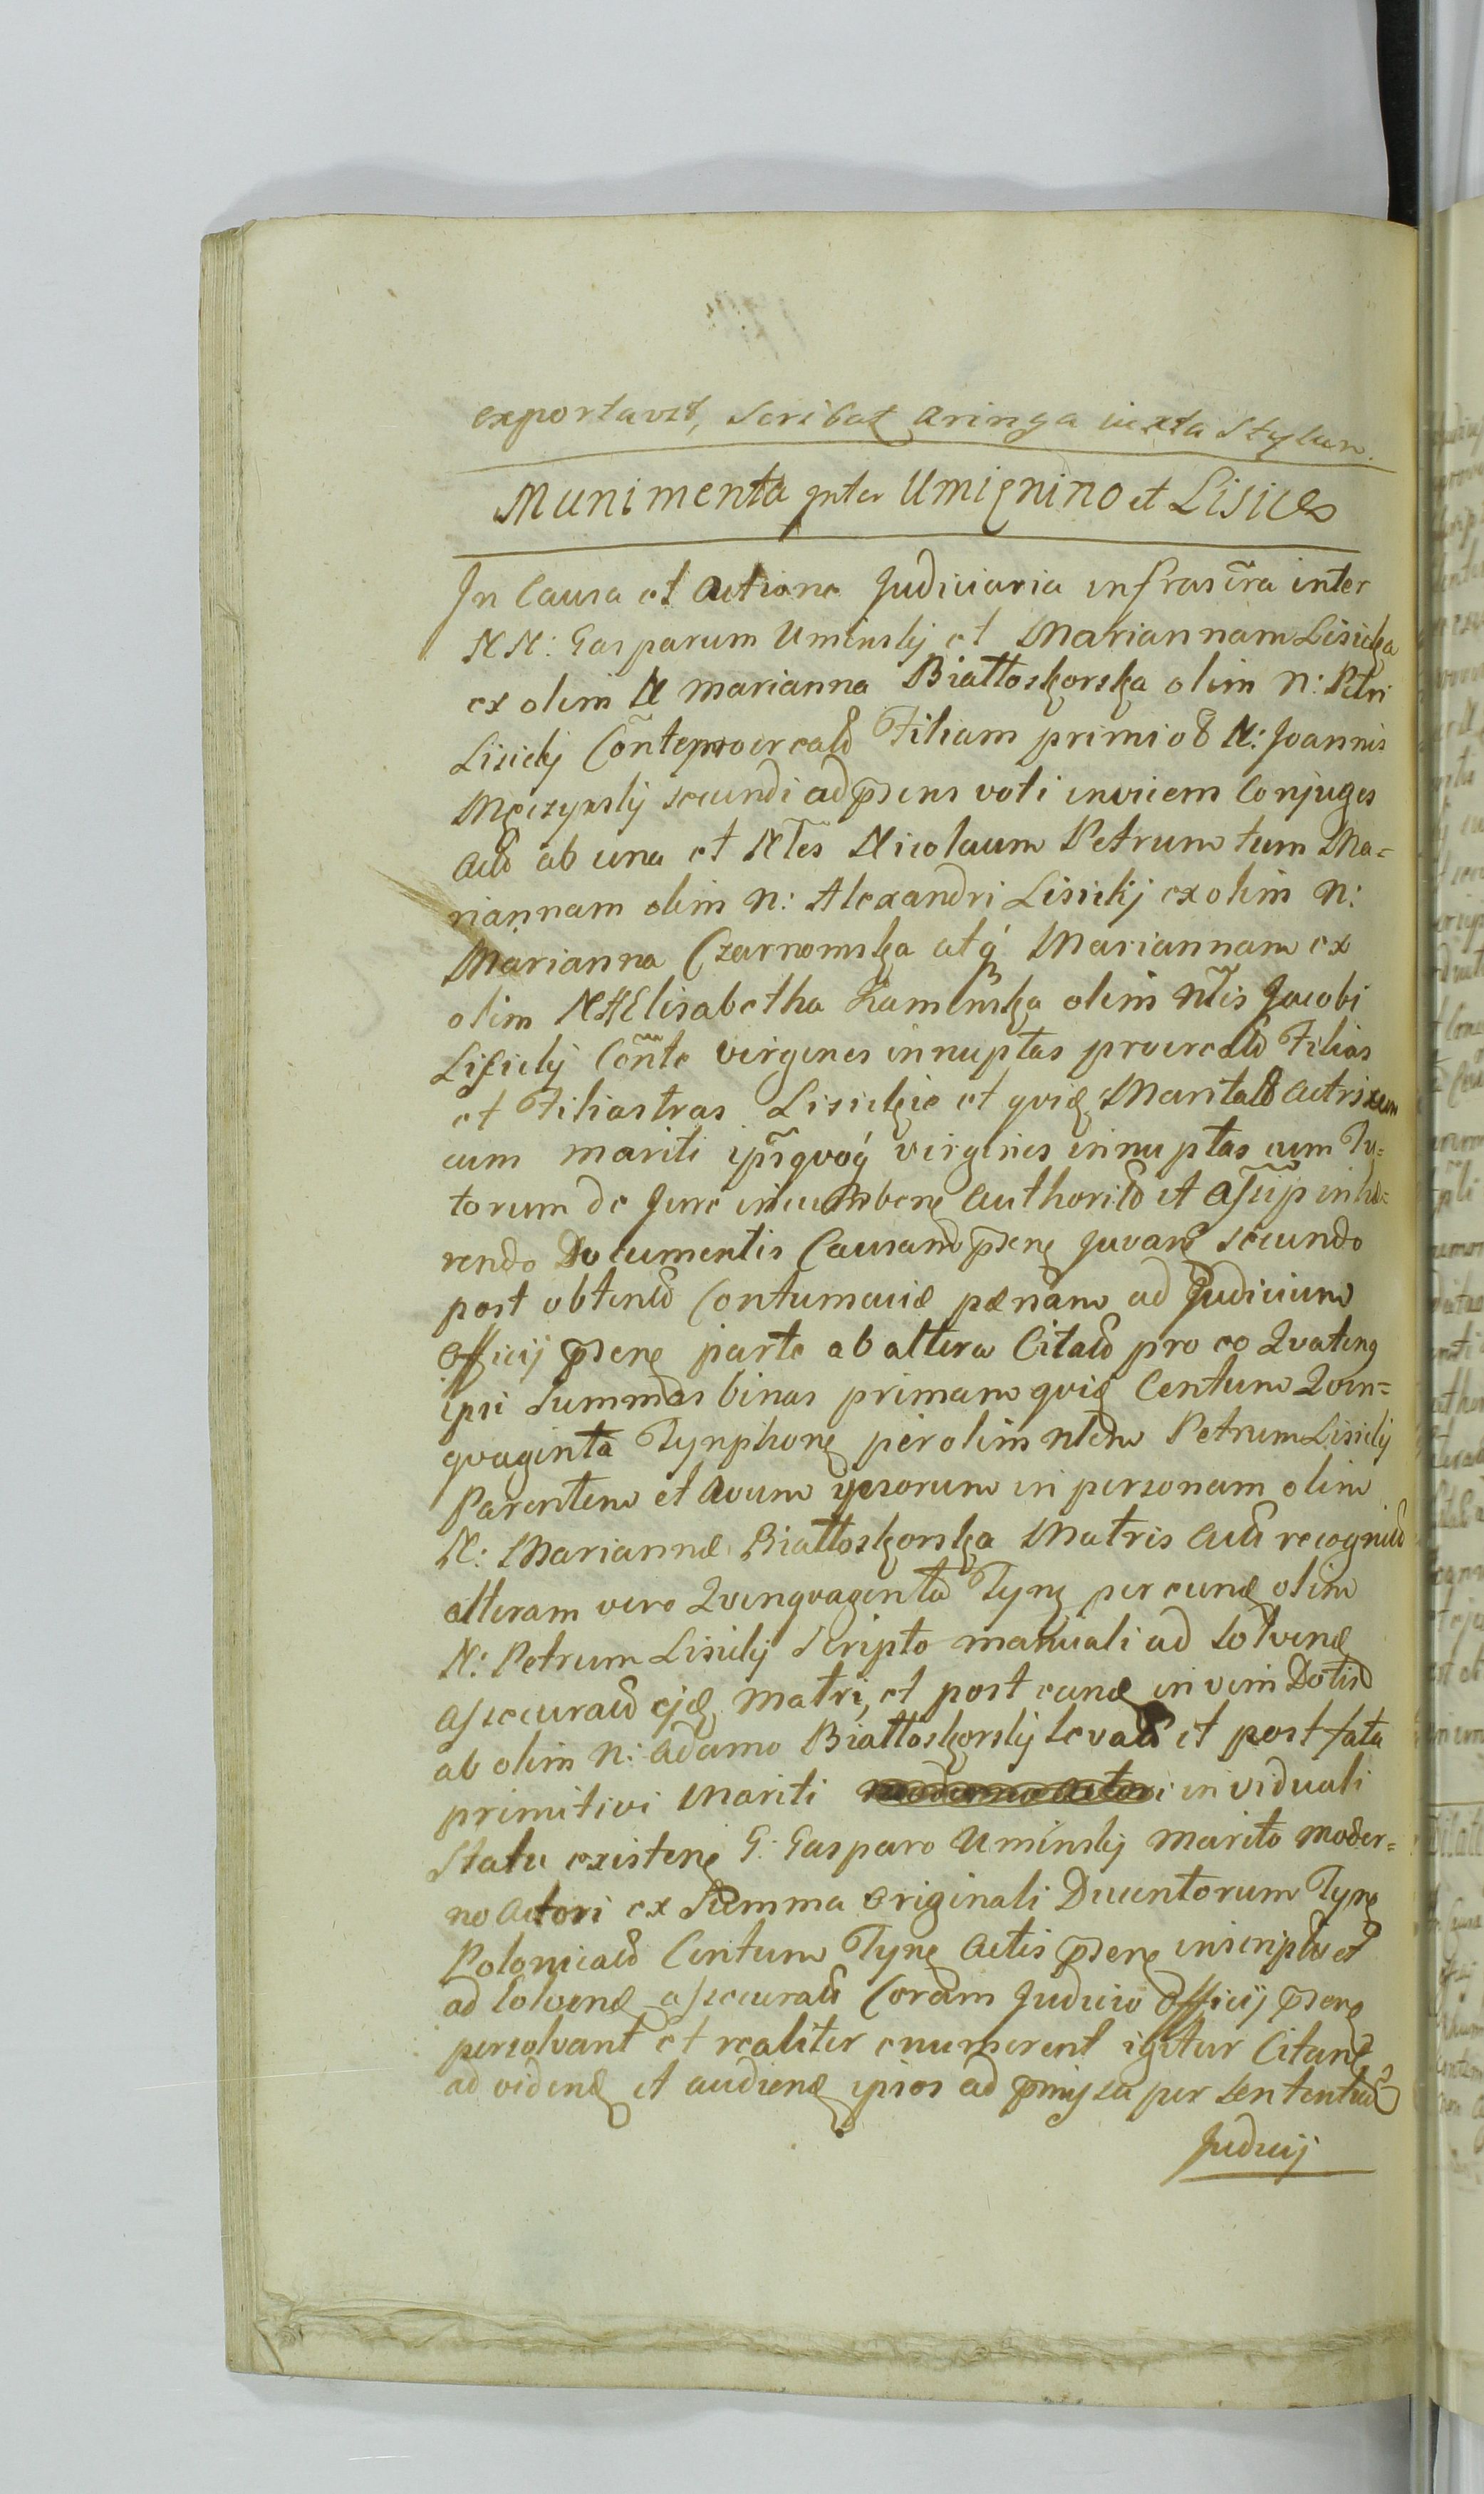 exportavit, scribat aringa iuxta Stylum.
Munimenta inter Umienino et Lisicz
In Causa et Actione Judiciaria infrascra inter
NN: Gasparum Uminskj et Mariannam Lisicka
ex olim N Marianna Białłoskorska olim N: Petri
Lisickj Conte procreatt Filiam primi o8 N: Joannis
Męczynskj secundi ad psens voti invicem Conjuges
Actt ab una et Nles Nicolaum Petrum tum Ma=
riannam olim N: Alexandri Lisickj ex olim N:
Marianna Czarnomska atq Mariannam ex
olim N Elisabetha Kaminska olim Nlis Jacobi
Lisickj Conte virgines innuptas procreatt Filias
et Filiastras Lisickie et quid Maritatt Actricem
cum mariti ipsq quoq virgines innuptas cum Tu=
torum de Jure incumben authoritt et assip inhæ=
rendo Documentis Causam psen Juvan secundo
post obtentt Contumaciæ pænam ad Judicium
Officij psen parte ab altera Citatt pro eo Quaten
ipsi Summas binas primam quid Centum Quin=
quaginta Tynphon per olim Nlem Petrum Lisickj
Parentem et Avum ipsorum in personam olim
N: Mariannæ Białłoskorska Matris Actt recognitt
alteram vero Quinquaginta Tynf per eund olim
N: Petrum Lisickj Scripto manuali ad solvend
assecuratt ejd Matri, et post eand in vim Dotis
ab olim N: Adamo Białłoskorskj levatt et post fata
primitivi Mariti in viduali
Statu existen G: Gasparo Uminskj Marito moder=
no Actori ex Summa Originali Ducentorum Tynf
Polonicatt Centum Tynf Actis psen inscriptt et
ad solvend assecuratt Coram Judicio Officij psen
persolvant et realiter enumerent igitur Citant
ad vidend et audiend ipsos ad pmissa per sententiatt
Judicij